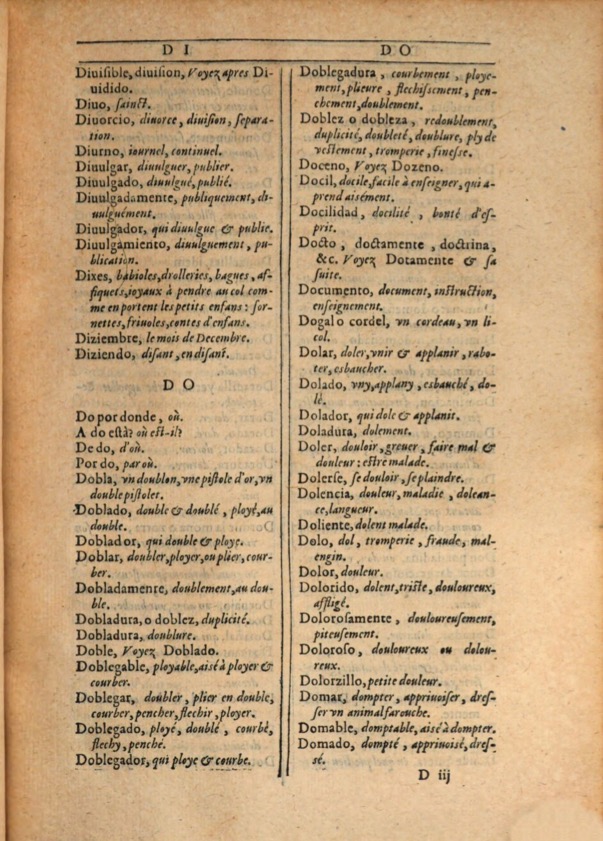 D I
Diuisible, diuision, Voyez apres Di-
uidido.
Diuo, sainct.
Diuorcio, diuorce, diuision, separa-
tion.
Diurno, iournel, continuel.
Diuulgar, diuulguer, publier.
Diuulgado, diuulgué, publié.
Diuulgadamente, publiquement, di-
uulguément.
Diuulgador, qui diuulgue & publie.
Diuulgamiento, diuulguement, pu-
blication.
Dixes, babioles, drolleries, bagues, af-
fiquets, ioyaux à pendre au col com-
me en portent les petits enfans : sor-
nettes, friuoles, contes d'enfans.
Diziembre, le mois de Decembre.
Diziendo, disant, en disant.
D O
Do por donde, où.
A do està? où est-il?
De do, d'où.
Por do, par où.
Dobla, vn doublon, vne pistole d'or, vn
double pistolet.
Doblado, double & doublé, ployé, au
double.
Doblador, qui double & ploye.
Doblar, doubler, ployer, ou plier, cour-
ber.
Dobladamente, doublement, au dou-
ble.
Dobladura, o doblez, duplicité.
Dobladura, doublure.
Doble, Voyez Doblado.
Doblegable, ployable, aisé à ployer &
courber.
Doblegar, doubler, plier en double,
courber, pencher, flechir, ployer.
Doblegado, ployé, doublé, courbé,
flechy, penché.
Doblegador, qui ploye & courbe.
D O
Doblegadura, courbement, ploye-
ment, plieure, flechissement, pen-
chement, doublement.
Doblez o dobleza, redoublement,
duplicité, doubleté, doublure, ply de
vestement, tromperie, finesse.
Doceno, Voyez Dozeno.
Docil, docile, facile à enseigner, qui a-
prend aisément.
Docilidad, docilité, bonté d'es-
prit.
Docto, doctamente, doctrina,
&c. Voyez Dotamente & sa
suite.
Documento, document, instruction,
enseignement.
Dogal o cordel, vn cordeau, vn li-
col.
Dolar, doler, vnir & applanir, rabo-
ter, esbaucher.
Dolado, vny, applany, esbauché, do-
lé.
Dolador, qui dole & applanit.
Doladura, dolement.
Doler, douloir, greuer, faire mal &
douleur : estre malade.
Dolerse, se douloir, se plaindre.
Dolencia, douleur, maladie, dolean-
ce, langueur.
Doliente, dolent malade.
Dolo, dol, tromperie, fraude, mal-
engin.
Dolor, douleur.
Dolorido, dolent, triste, douloureux,
affligé.
Dolorosamente, douloureusement,
piteusement.
Doloroso, douloureux ou dolou-
reux.
Dolorzillo, petite douleur.
Domar, dompter, appriuoiser, dres-
ser vn animal farouche.
Domable, domptable, aisé à dompter.
Domado, dompté, appriuoisé, dres-
sé.
D iij